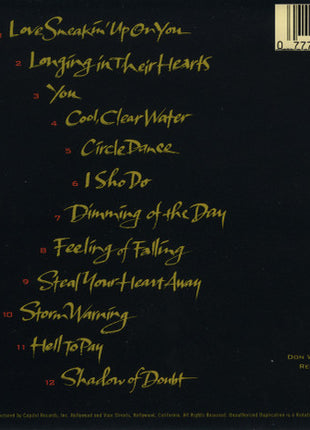 1 Love Sneakin' Up On You
0 777
2 Longing in Their Hearts
3 You
4 Cool, Clear Water
5 Circle Dance
6 I Sho Do
7 Dimming of the Day
8 Feeling of Falling
9 Steal Your Heart Away
10 Storm Warning
11 Hell To Pay
Don W
Re
12 Shadow of Doubt
ctured by Capitol Records, Inc. Hollywood and Vine Streets, Hollywood, California. All Rights Reserved. Unauthorized Duplication is a Violat